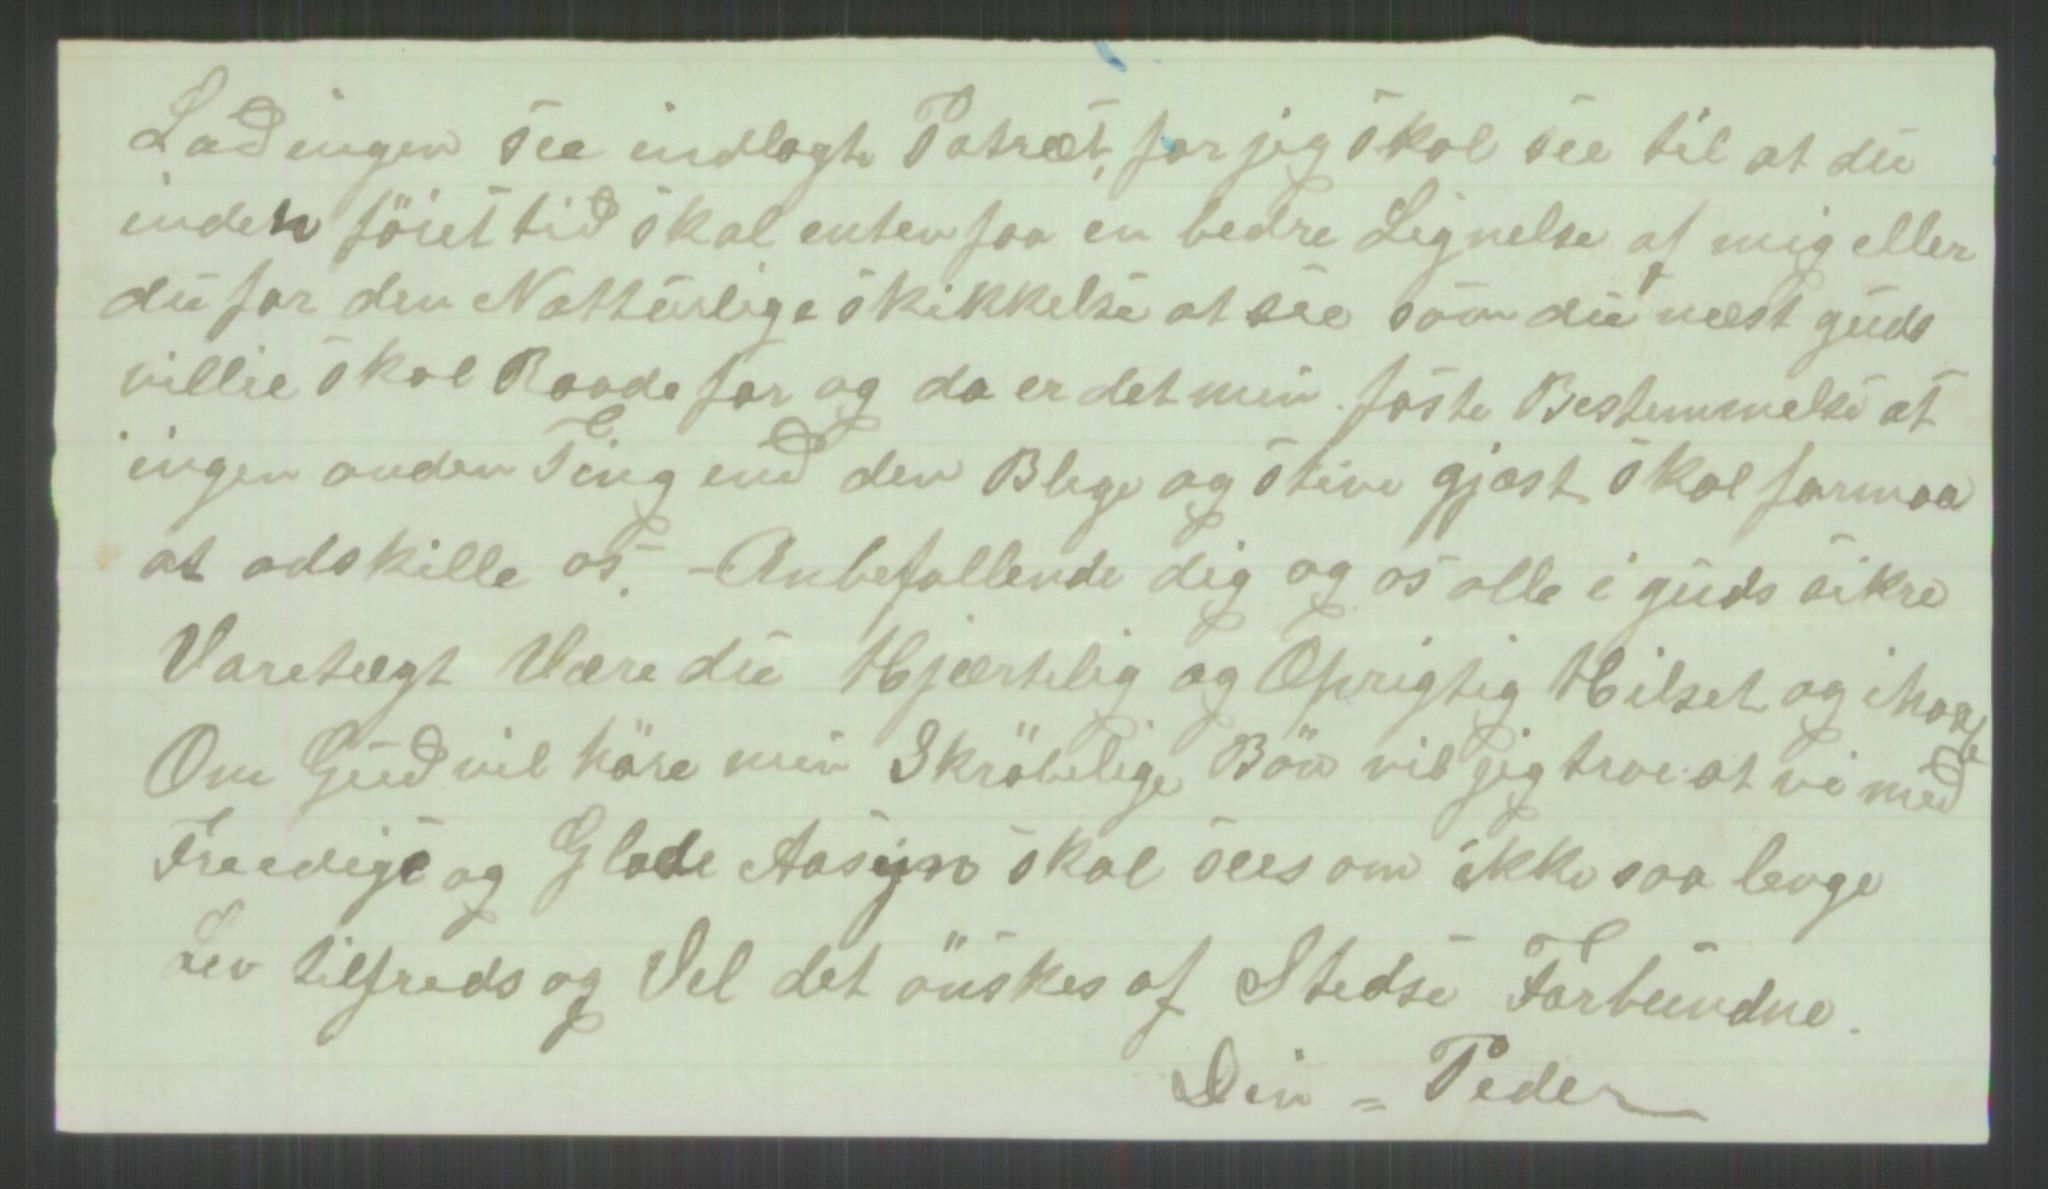 Lad ingen see indlagte Patræt, for jeg skal see til at du
inden föiet tid skal enten faa en bedre Lignelse af mig eller
du far den Natturlige skikkelse at see som du næst guds
villie skal Raade for og da er det min faste Bestemmelse at
ingen anden Ting end den Blege og stive gjæst skal formaa
at adskille os. - Anbefallende dig og os alle i guds sikre
Varetægt Være du Hjærtelig og Oprigtig Hilset og ihaage
Om Gud vil höre min Skröbelige Bön vil jeg troe at vi med
Freedige og Glade Aasyn skal sees om ikke saa lenge
Lev tilfreds og Vel det önskes af Stedse Forbundne.
Din = Peder